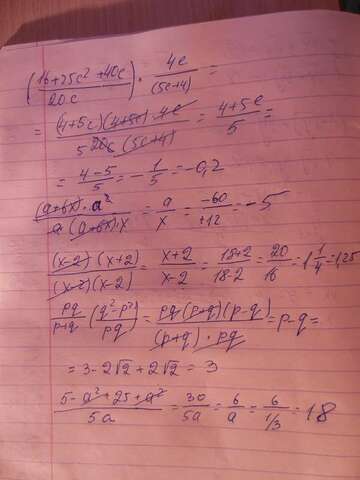 (16+25c²+40c / 20c) · 4c / (5c+4) =
= (4+5c)(4+5c)·4c / 5 20c (5c+4) = 4+5c / 5 =
= 4-5 / 5 = -1/5 = -0,2
(a+6x)·a² / a(a+6x)·x = a/x = -60 / +12 = -5
(x-2)(x+2) / (x-2)(x-2) = x+2 / x-2 = 18+2 / 18-2 = 20/16 = 1 1/4 = 1,25
pq / p+q (q²-p² / pq) = pq(p+q)(p-q) / (p+q)·pq = p-q =
= 3-2√2+2√2 = 3
5-a²+25+a² / 5a = 30 / 5a = 6/a = 6 / 1/3 = 18